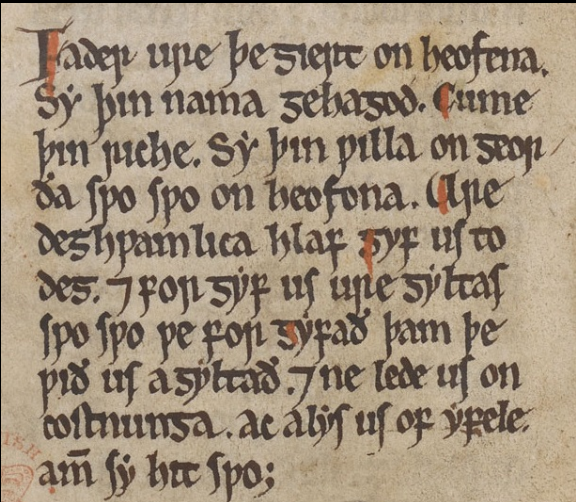 Fader ure þe giert on heofena.
Sẏ þin nama gehagod. Cume
þin riche. Sẏ þin ƿilla on geor
ða ſƿo ſƿo on heofona. Ure
deghƿamlica hlaf gẏf us to
deg. ⁊ for gẏf us ure gẏltas
ſƿo ſƿo ƿe for gẏfað þam þe
ƿið uſ agẏltað. ⁊ ne lede uſ on
coſtnunga. ac alẏs us of ẏfele.
am̄ sẏ hit ſƿo;